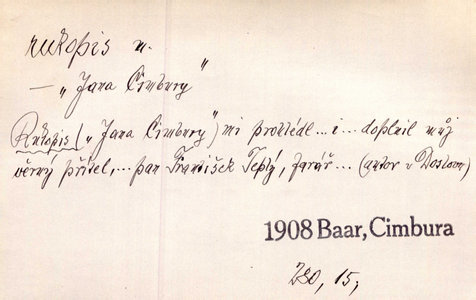 rukopis n.
— „Jana Cimbury"
Rukopis („Jana Cimbury") mi prohlédl ... i ... doplnil můj
věrný přítel, ... pan František Teplý, farář ... (autor v Doslovu)
1908 Baar, Cimbura
280, 15,